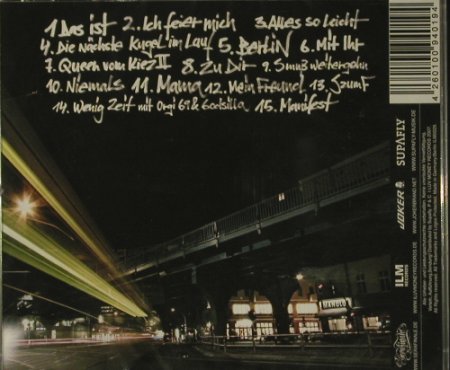 1 Das ist 2. Ich feier mich 3. Alles so leicht
4. Die Nächste Kugel im Lauf 5. Berlin 6. Mit Ihr
7. Queen vom Kiez II 8. Zu Dir 9. S muß weitergehn
10. Niemals 11. Mama 12. Mein Freund 13. Sumf
14. Wenig Zeit mit Orgi 69 & Godsilla 15. Manifest
4 260100 940194
SUPAFLY
WWW.SUPAFLY-MUSIK.DE
JOKER
WWW.JOKERBRAND.NET
ILM
WWW.ILUVMONEYRECORDS.DE
MANULO